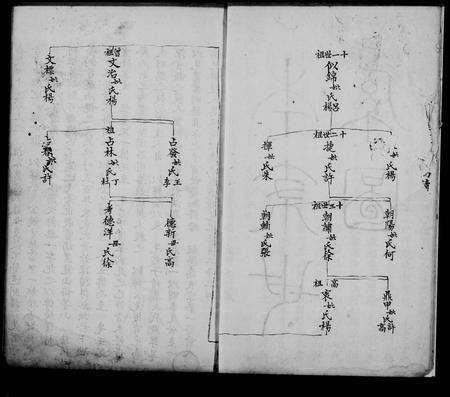 十一世祖
似錦妣氏楊呂
十二世祖
妣氏楊
捷妣氏許
揮妣氏朱
十三世祖
朝陽妣氏何
朝輔妣氏徐
朝輪妣氏張
高祖
鼎甲妣氏許高
衷妣氏楊
曾祖
文治妣氏楊
文標妣氏楊
祖
占發妣氏王李
占林妣氏丁杜
妣氏許
德新妣氏高
考德洋妣氏徐